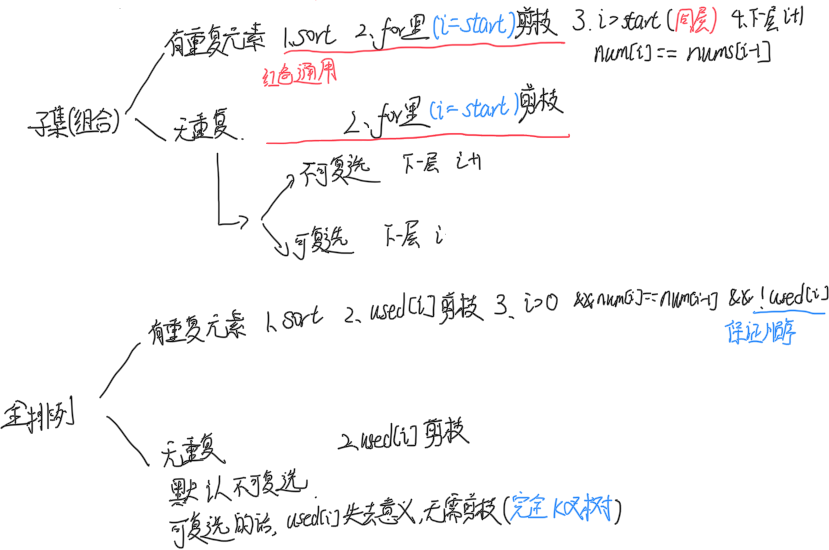 有重复元素 1.sort 2.for里(i=start)剪枝 3.i>start(同层) 4.下一层 i+1
num[i]== nums[i-1]
红色通用
子集(组合)
无重复. 2.for里(i=start)剪枝
不可复选 下一层 i+1
可复选 下一层 i
有重复元素 1.sort 2.used[i]剪枝 3.i>0 &&num[i]==num[i-1] && !used[i]
保证顺序
全排列
无重复 2.used[i]剪枝
默认不可复选.
可复选的话,used[i]失去意义,无需剪枝(完全K叉树)